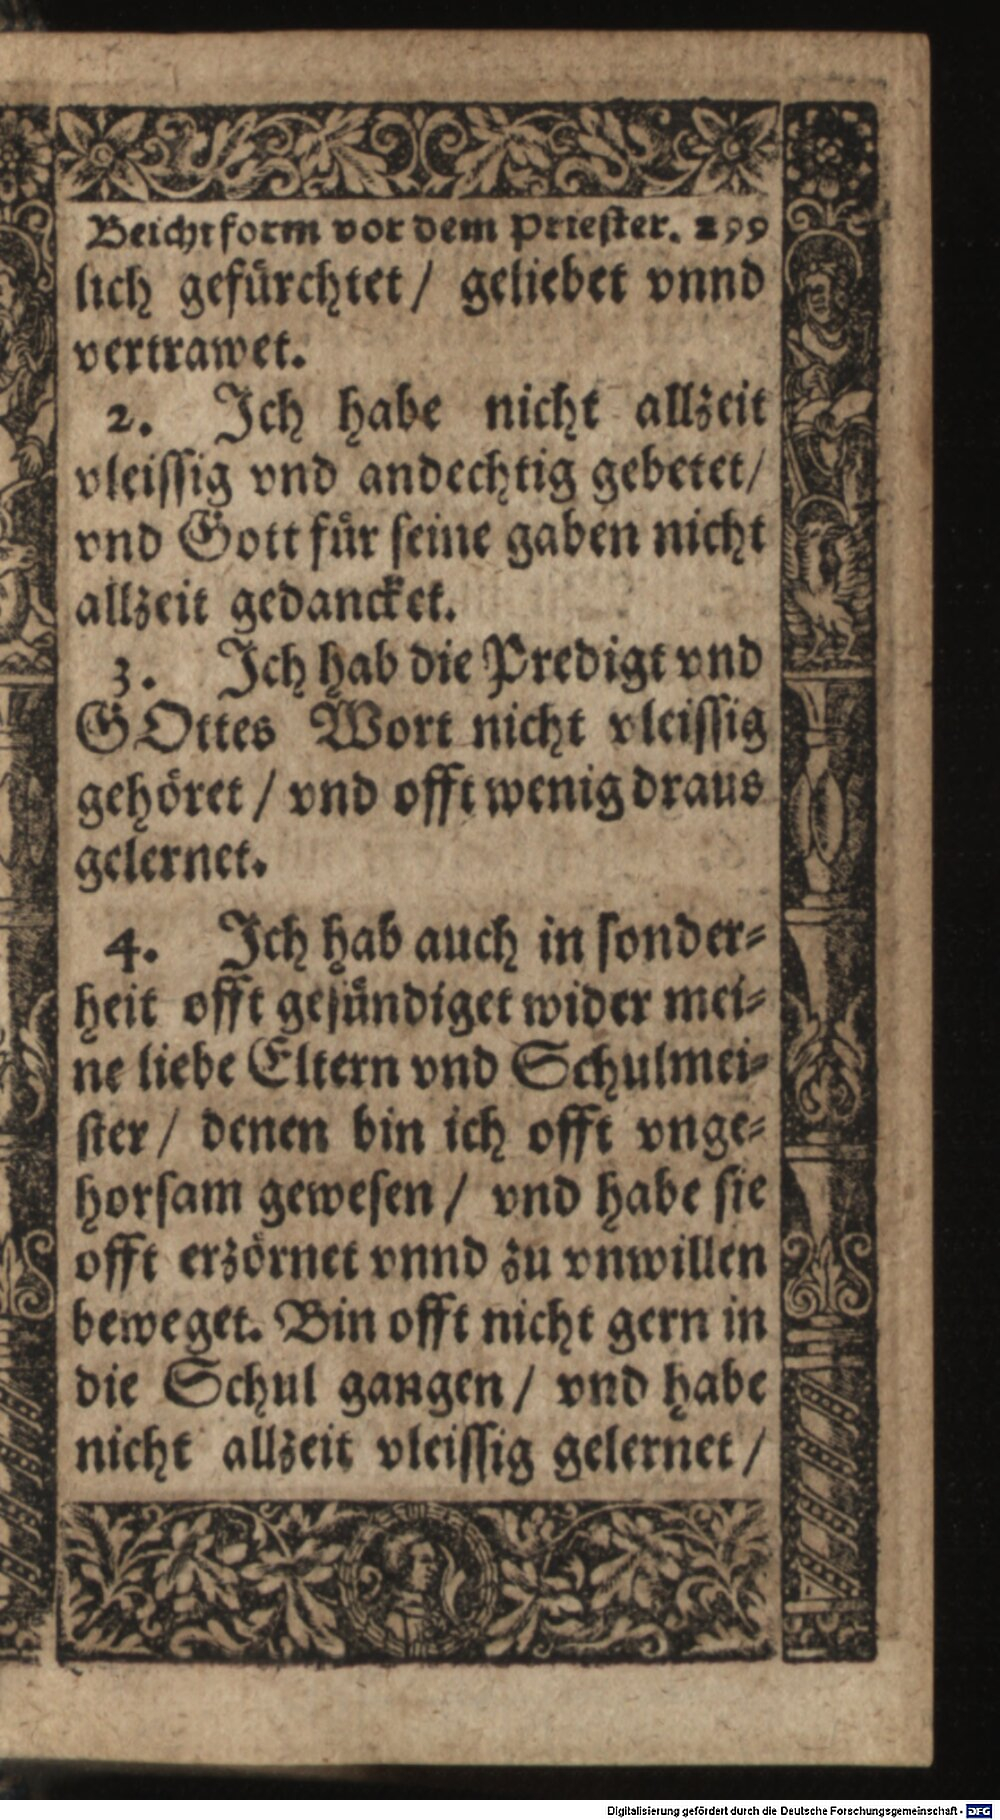 Beichtform vor dem Priester. 299
lich gefürchtet / geliebet vnnd
vertrawet.
2. Ich habe nicht allzeit
vleissig vnd andechtig gebetet/
vnd Gott für seine gaben nicht
allzeit gedancket.
3. Ich hab die Predigt vnd
GOttes Wort nicht vleissig
gehöret / vnd offt wenig draus
gelernet.
4. Ich hab auch in sonder⸗
heit offt gesündiget wider mei⸗
ne liebe Eltern vnd Schulmei⸗
ster / denen bin ich offt vnge⸗
horsam gewesen / vnd habe sie
offt erzörnet vnnd zu vnwillen
beweget. Bin offt nicht gern in
die Schul gangen / vnd habe
nicht allzeit vleissig gelernet /
Digitalisierung gefördert durch die Deutsche Forschungsgemeinschaft - DFG